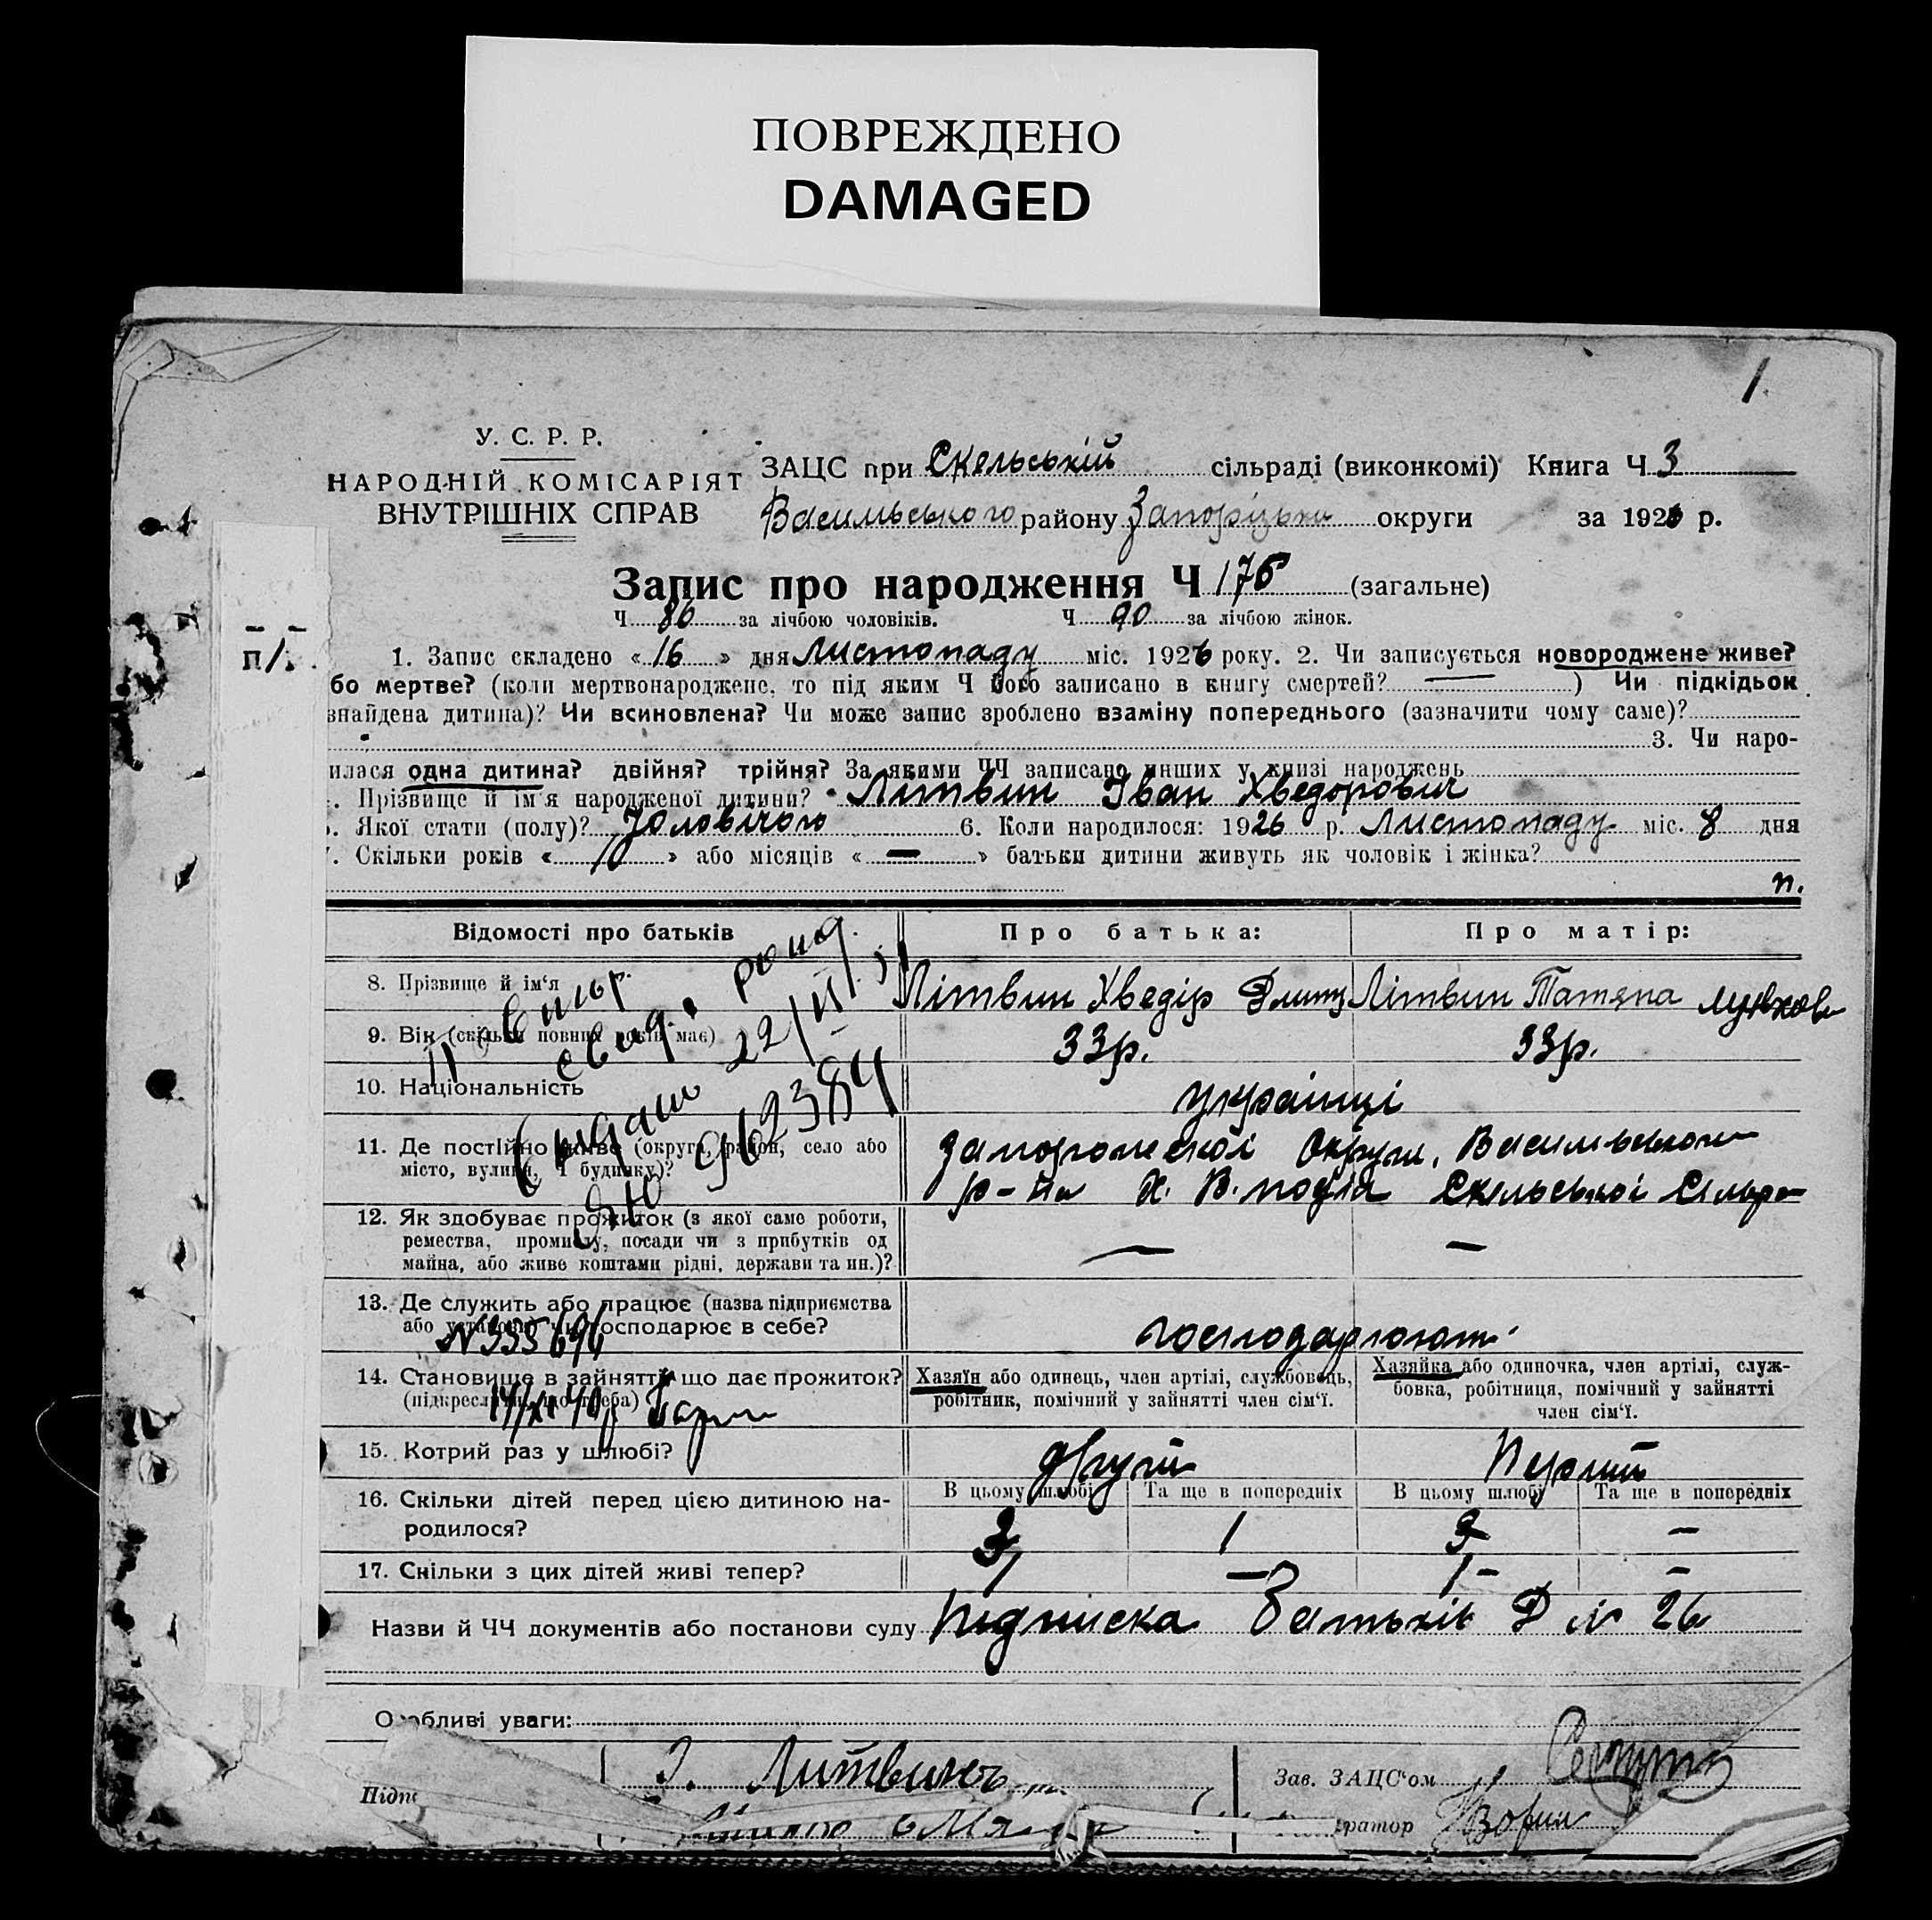 ПОВРЕЖДЕНО
DAMAGED
1
У. С. Р. Р.
НАРОДНІЙ КОМІСАРІЯТ
ВНУТРІШНІХ СПРАВ
ЗАЦС при Скельській сільраді (виконкомі) Книга Ч 3
Васильського району Запоріцьки округи за 1926 р.
Запис про народження Ч 176 (загальне)
Ч 86 за лічбою чоловіків. Ч 90 за лічбою жінок.
п/
1. Запис складено « 16 » дня Листопаду міс. 1926 року. 2. Чи записується новороджене живе?
бо мертве? (коли мертвонароджене, то під яким Ч його записано в книгу смертей? — ) Чи підкідьок
знайдена дитина)? Чи всиновлена? Чи може запис зроблено взаміну попереднього (зазначити чому саме)?
3. Чи наро-
илася одна дитина? двійня? трійня? За якими ЧЧ записано инших у книзі народжень
. Прізвище й ім'я народженої дитини? Літвин Іван Хведорович
. Якої стати (полу)? Чоловічого 6. Коли народилося: 1926 р. Листопаду міс. 8 дня
7. Скільки років « 10 » або місяців « — » батьки дитини живуть як чоловік і жінка?
п.
Відомості про батьків Про батька: Про матір:
8. Прізвище й ім'я Літвин Хведір Дмит Літвин Татяна
9. Вік (скільки повних років має) 33р. 33р.
10. Національність українці
11. Де постійно живе (округа, район, село або
місто, вулиця, Ч будинку)?
Запорожскої Округи, Васильевского
р-на Х. В. Скельської Сільра
12. Як здобуває прожиток (з якої саме роботи,
ремества, промислу, посади чи з прибутків од
майна, або живе коштами рідні, держави та ин.)?
— —
13. Де служить або працює (назва підприємства
або установи) чи господарює в себе?
господарюют
14. Становище в зайнятті, що дає прожиток?
(підкреслити, що треба)
Хазяїн або одинець, член артілі, службовець,
робітник, помічний у зайнятті член сім'ї.
Хазяйка або одиночка, член артілі, служ-
бовка, робітниця, помічний у зайнятті
член сім'ї.
15. Котрий раз у шлюбі? другий Перший
16. Скільки дітей перед цією дитиною на-
родилося?
В цьому шлюбі Та ще в попередніх В цьому шлюбі Та ще в попередніх
3 1 3 —
17. Скільки з цих дітей живі тепер? 1 — 1 - —
свид. рожд.
22/VI
962384
N 335696
Назви й ЧЧ документів або постанови суду Підписка батьків Д № 26
Особливі уваги:
Підп
Литвинъ
Зав. ЗАЦС'ом
ратор